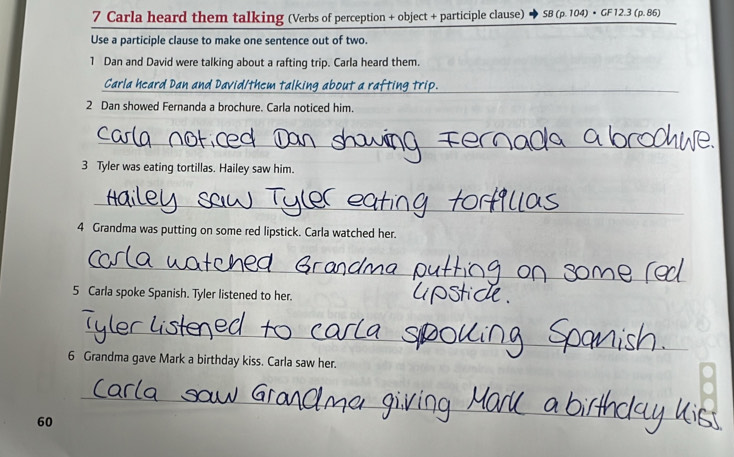 7 Carla heard them talking (Verbs of perception + object + participle clause) → SB (p. 104) • GF 12.3 (p. 86)
Use a participle clause to make one sentence out of two.
1 Dan and David were talking about a rafting trip. Carla heard them.
Carla heard Dan and David/them talking about a rafting trip.
2 Dan showed Fernanda a brochure. Carla noticed him.
Carla noticed Dan showing Fernada a brochure.
3 Tyler was eating tortillas. Hailey saw him.
Hailey saw Tyler eating tortillas
4 Grandma was putting on some red lipstick. Carla watched her.
Carla watched Grandma putting on some red
lipstick.
5 Carla spoke Spanish. Tyler listened to her.
Tyler listened to carla spoking Spanish.
6 Grandma gave Mark a birthday kiss. Carla saw her.
Carla saw Grandma giving Mark a birthday kiss.
60